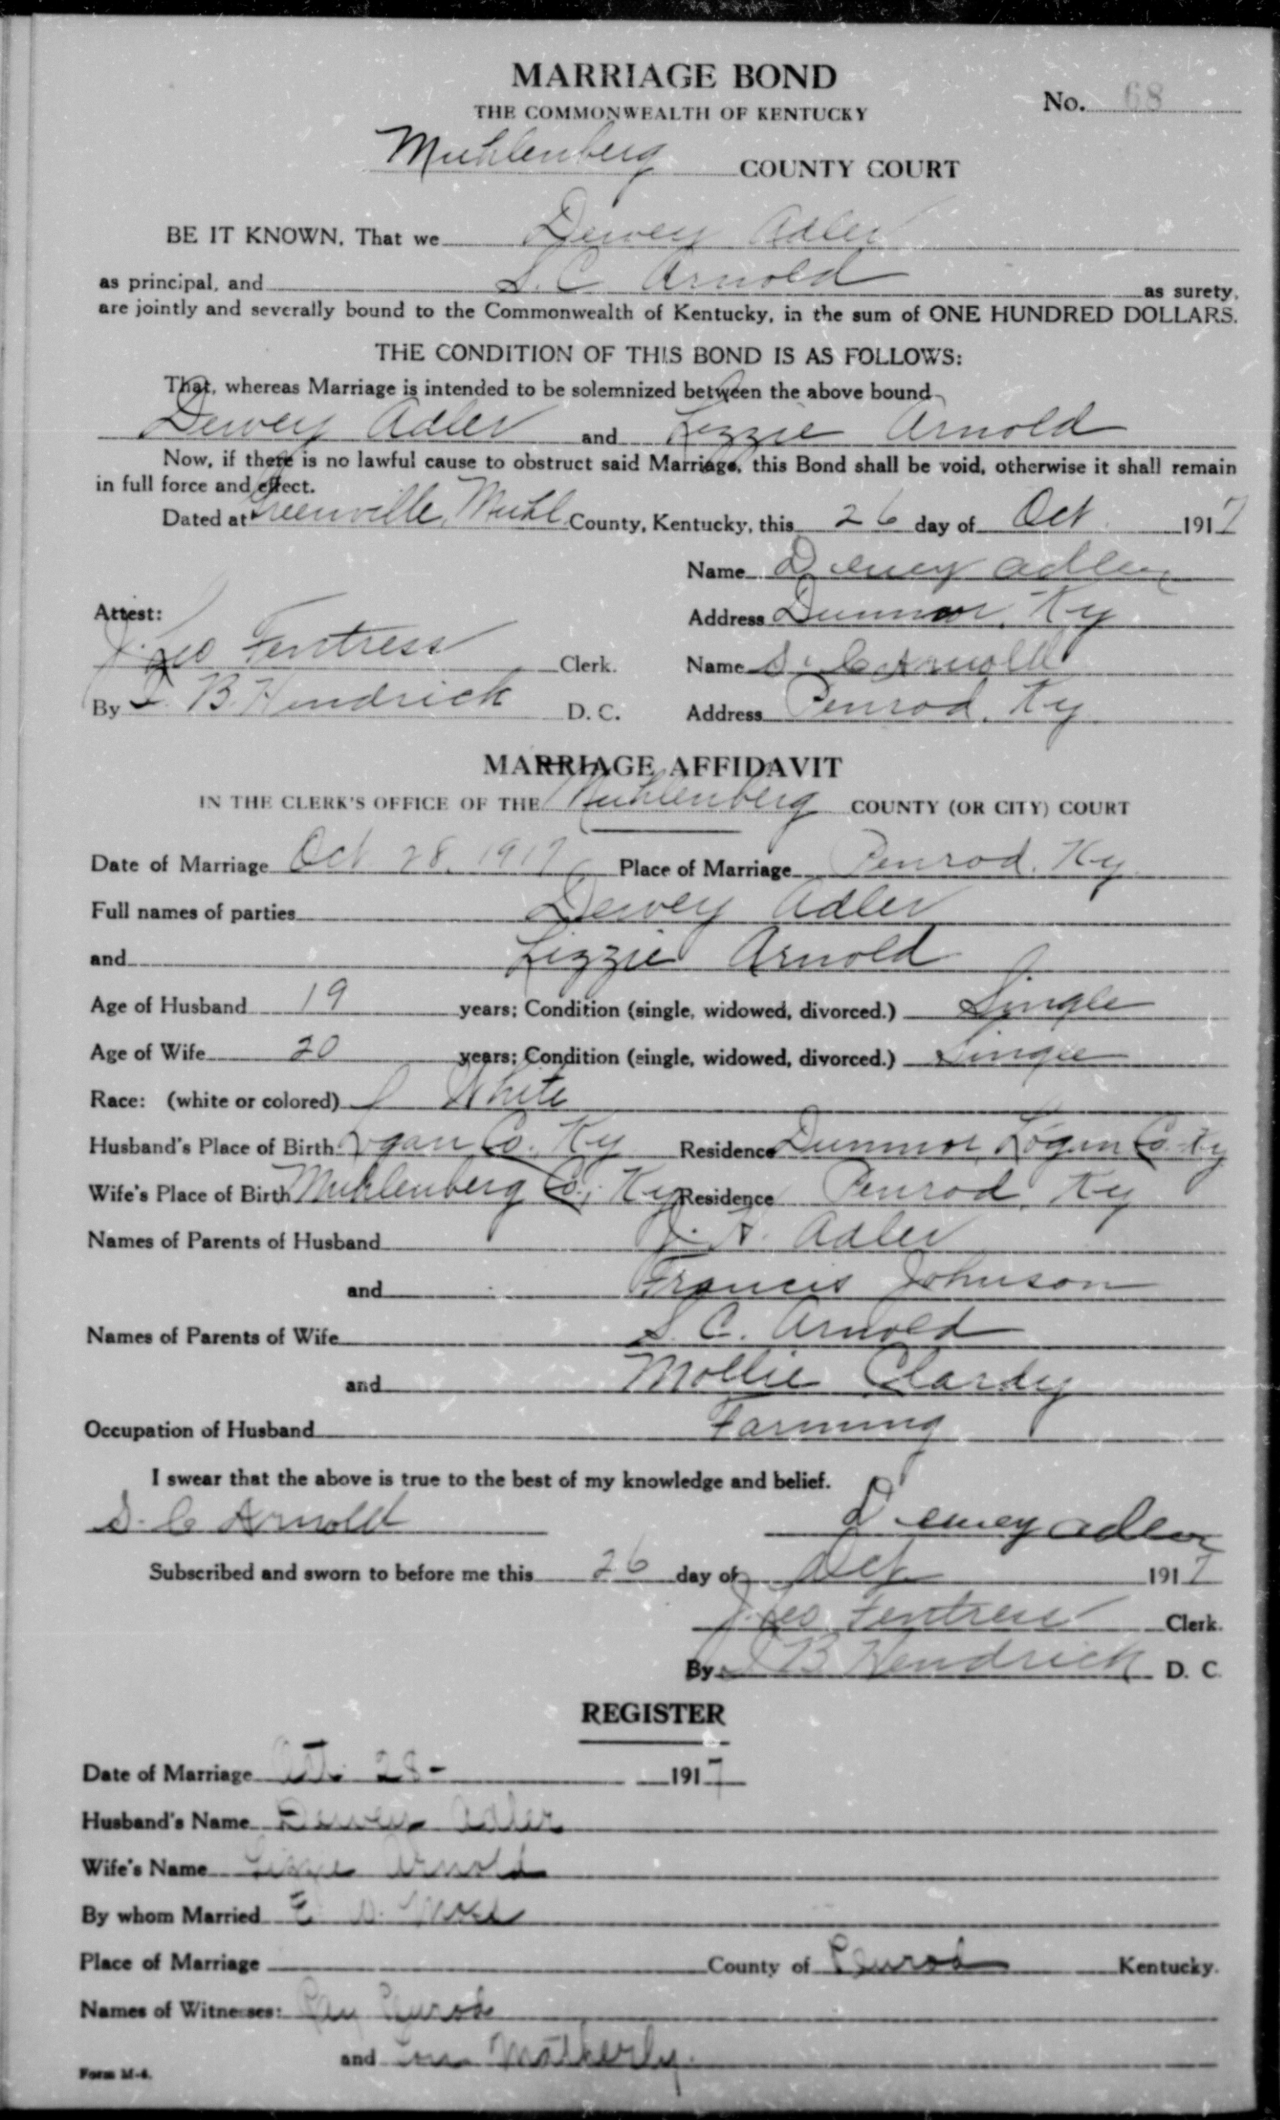 MARRIAGE BOND
THE COMMONWEALTH OF KENTUCKY
No. 68
Muhlenberg COUNTY COURT
BE IT KNOWN, That we Dewey Adler
as principal, and S. C. Arnold as surety,
are jointly and severally bound to the Commonwealth of Kentucky, in the sum of ONE HUNDRED DOLLARS.
THE CONDITION OF THIS BOND IS AS FOLLOWS:
That, whereas Marriage is intended to be solemnized between the above bound
Dewey Adler and Lizzie Arnold
Now, if there is no lawful cause to obstruct said Marriage, this Bond shall be void, otherwise it shall remain
in full force and effect.
Dated at Greenville, Muhl County, Kentucky, this 26 day of Oct. 1917
Name Dewey Adler
Attest: Address Dunmor, Ky
J. Leo Fentress Clerk. Name S. C Arnold
By B. Hendrick D. C. Address Penrod, Ky
MARRIAGE AFFIDAVIT
IN THE CLERK'S OFFICE OF THE Muhlenberg COUNTY (OR CITY) COURT
Date of Marriage Oct 28, 1917 Place of Marriage Penrod, Ky.
Full names of parties Dewey Adler
and Lizzie Arnold
Age of Husband 19 years; Condition (single, widowed, divorced.) Single
Age of Wife 20 years; Condition (single, widowed, divorced.) Single
Race: (white or colored) White
Husband's Place of Birth Logan Co., Ky Residence Dunmor, Logan Co. Ky
Wife's Place of Birth Muhlenberg Co., Ky Residence Penrod, Ky
Names of Parents of Husband J. H. Adler
and Francis Johnson
Names of Parents of Wife S. C. Arnold
and Mollie Clardy
Occupation of Husband Farming
I swear that the above is true to the best of my knowledge and belief.
S. C Arnold Dewey Adler
Subscribed and sworn to before me this 26 day of Oct 1917
J. Leo Fentress Clerk.
By B Hendrick D. C.
REGISTER
Date of Marriage Oct. 28- 1917
Husband's Name Dewey Adler
Wife's Name Lizzie Arnold
By whom Married E
Place of Marriage County of Penrod Kentucky.
Names of Witnesses: Penrod
and Matherly.
Form M-4.